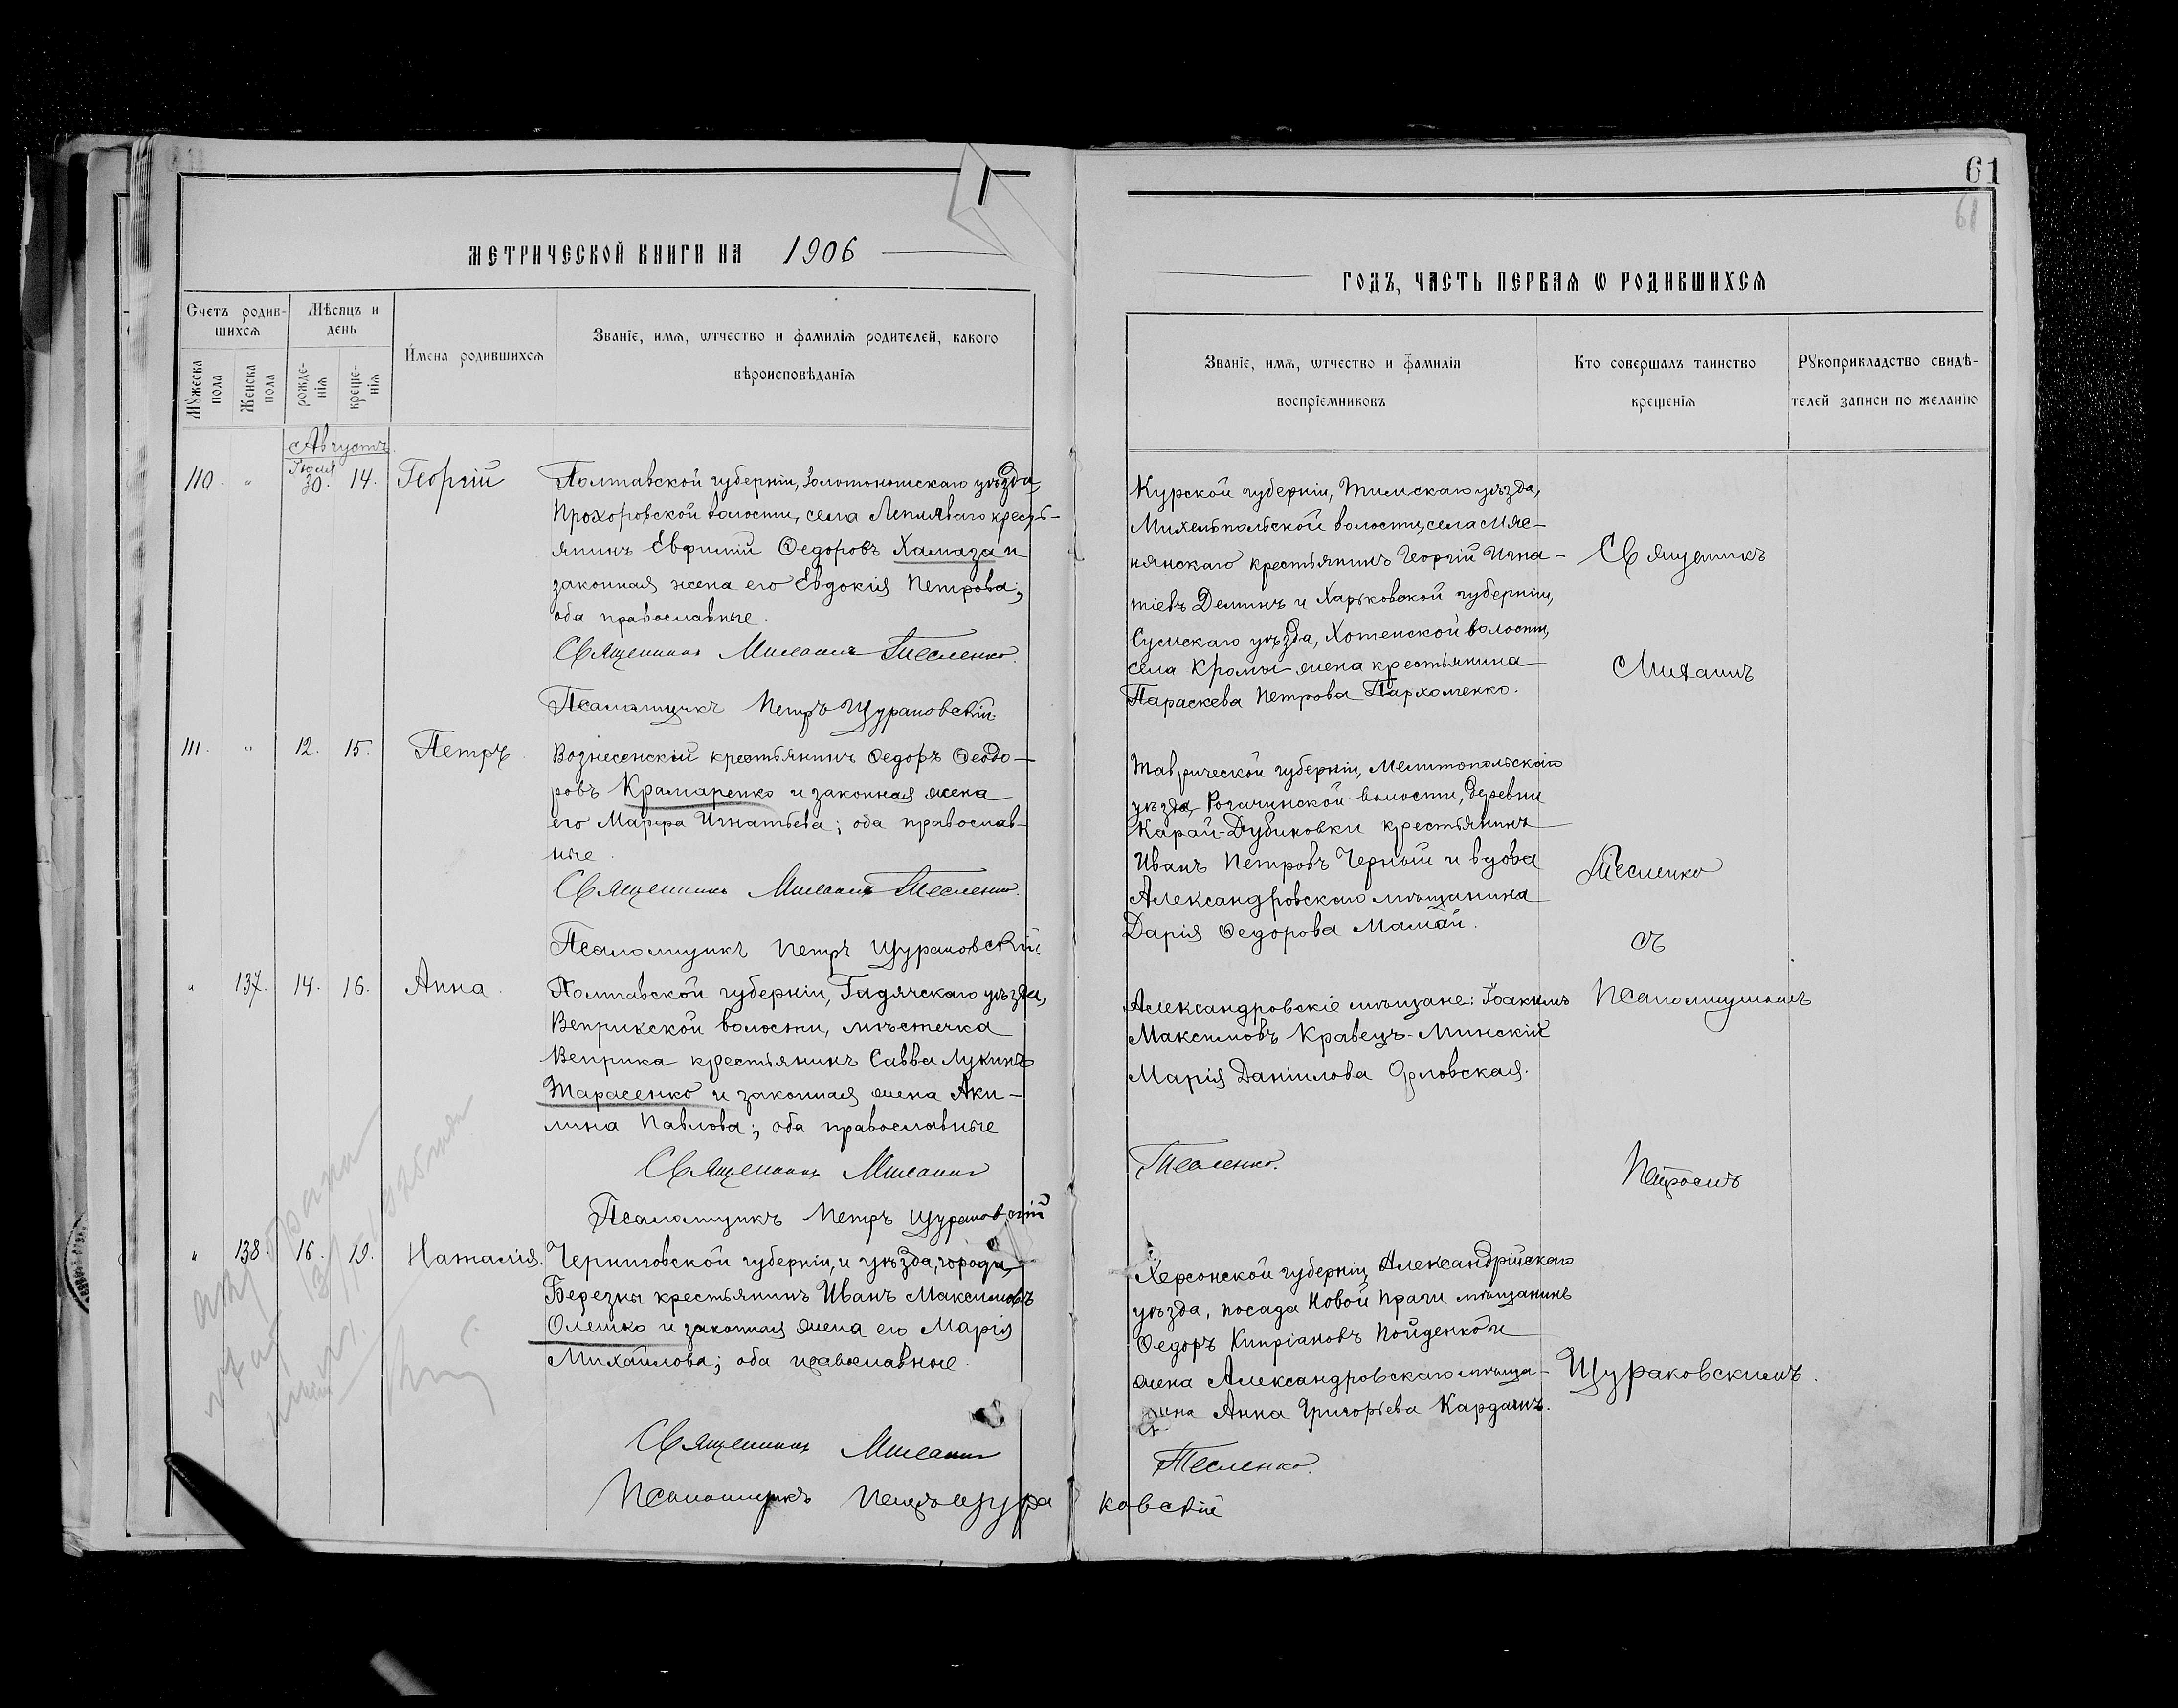 61
61
МЕТРИЧЕСКОЙ КНИГИ НА 1906
ГОДЪ, ЧАСТЬ ПЕРВАѦ Ѡ РОДИВШИХСѦ
Счетъ родив-
шихсѧ
Мѣсяцъ и
день
Мꙋжеска
пола
Женска
пола
рожде-
нїѧ
креще-
нїѧ
Имена родившихсѧ
Званїе, имѧ, ѿчество и фамилїѧ родителей, какого
вѣроисповѣданїѧ
Званїе, имѧ, ѿчество и фамилїѧ
воспрїемниковъ
Кто совершалъ таинство
крещенїѧ
Рꙋкоприкладство свидѣ-
телей записи по желанїю
Августъ.
110. " Іюля 30. 14. Георгій
Полтавской губерніи, Золотоношскаго уѣзда,
Прохоровской волости, села Лепляваго кресть-
янинъ Евфимій Ѳедоровъ Хамаза и
законная жена его Евдокія Петрова;
оба православные.
Священникъ Михаилъ Тесленко.
Псаломщикъ Петръ Щураковскій.
Курской губерніи, Тимскаго уѣзда,
Михельпольской волости, села Мяс-
нянскаго крестьянинъ Георгій Игна-
тіевъ Деминъ и Харьковской губерніи,
Сумскаго уѣзда, Хотенской волости,
села Кромы жена крестьянина
Параскева Петрова Пархоменко.
Священникъ
Михаилъ
111. " 12. 15. Петръ.
Вознесенскій крестьянинъ Ѳедоръ Ѳеодо-
ровъ Крамаренко и законная жена
его Марфа Игнатьева; оба православ-
ные.
Священникъ Михаилъ Тесленко.
Псаломщикъ Петръ Щураковскій.
Таврической губерніи, Мелитопольскаго
уѣзда, Рогачинской волости, деревни
Карай-Дубиновки крестьянинъ
Иванъ Петровъ Черный и вдова
Александровскаго мѣщанина
Дарія Ѳедорова Мамай.
Тесленко
съ
" 137. 14. 16. Анна.
Полтавской губерніи, Гадячскаго уѣзда,
Веприкской волости, мѣстечка
Веприка крестьянинъ Савва Лукинъ
Тарасенко и законная жена Аки-
лина Павлова; оба православные
Священникъ Михаилъ
Псаломщикъ Петръ Щураковскій
Александровскіе мѣщане: Іоакимъ
Максимовъ Кравецъ-Минскій
Марія Даніилова Орловская.
Тесленко.
Псаломщикомъ
Петромъ
" 138. 16. 19. Наталія.
Черниговской губерніи, и уѣзда, города
Березны крестьянинъ Иванъ Максимовъ
Олешко и законная жена его Марія
Михайлова; оба православные.
Священникъ Михаилъ
Псаломщикъ Петръ Щура
Херсонской губерніи, Александрійскаго
уѣзда, посада Новой Праги мѣщанинъ
Ѳедоръ Кипріановъ Пойденко и
жена Александровскаго мѣща-
нина Анна Григорьева Кардашъ.
Тесленко.
ковскій
Щураковскимъ.